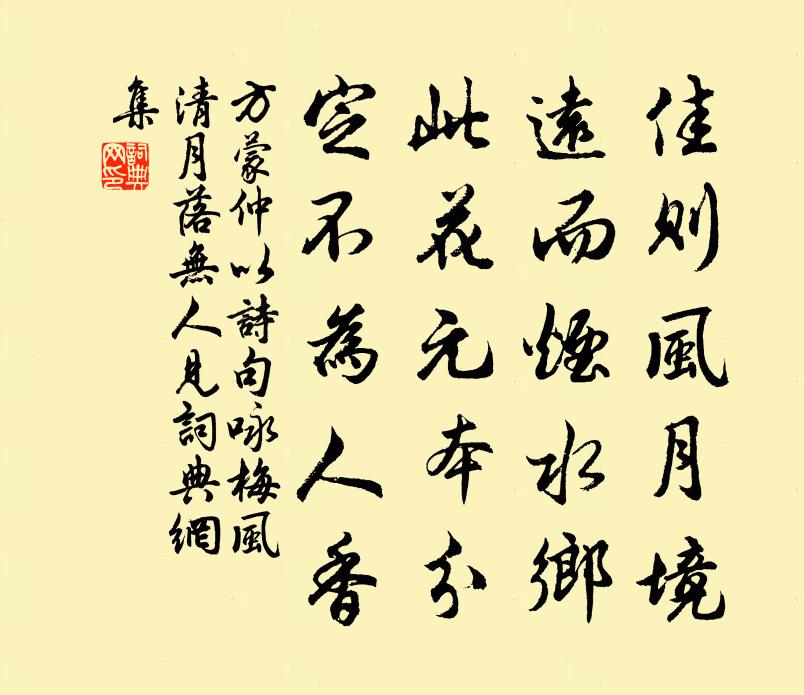 佳則風月境
遠而煙水鄉
此花元本分
定不為人香
方蒙仲以詩句咏梅風
清月落無人見詞典網
集
詞典
网印